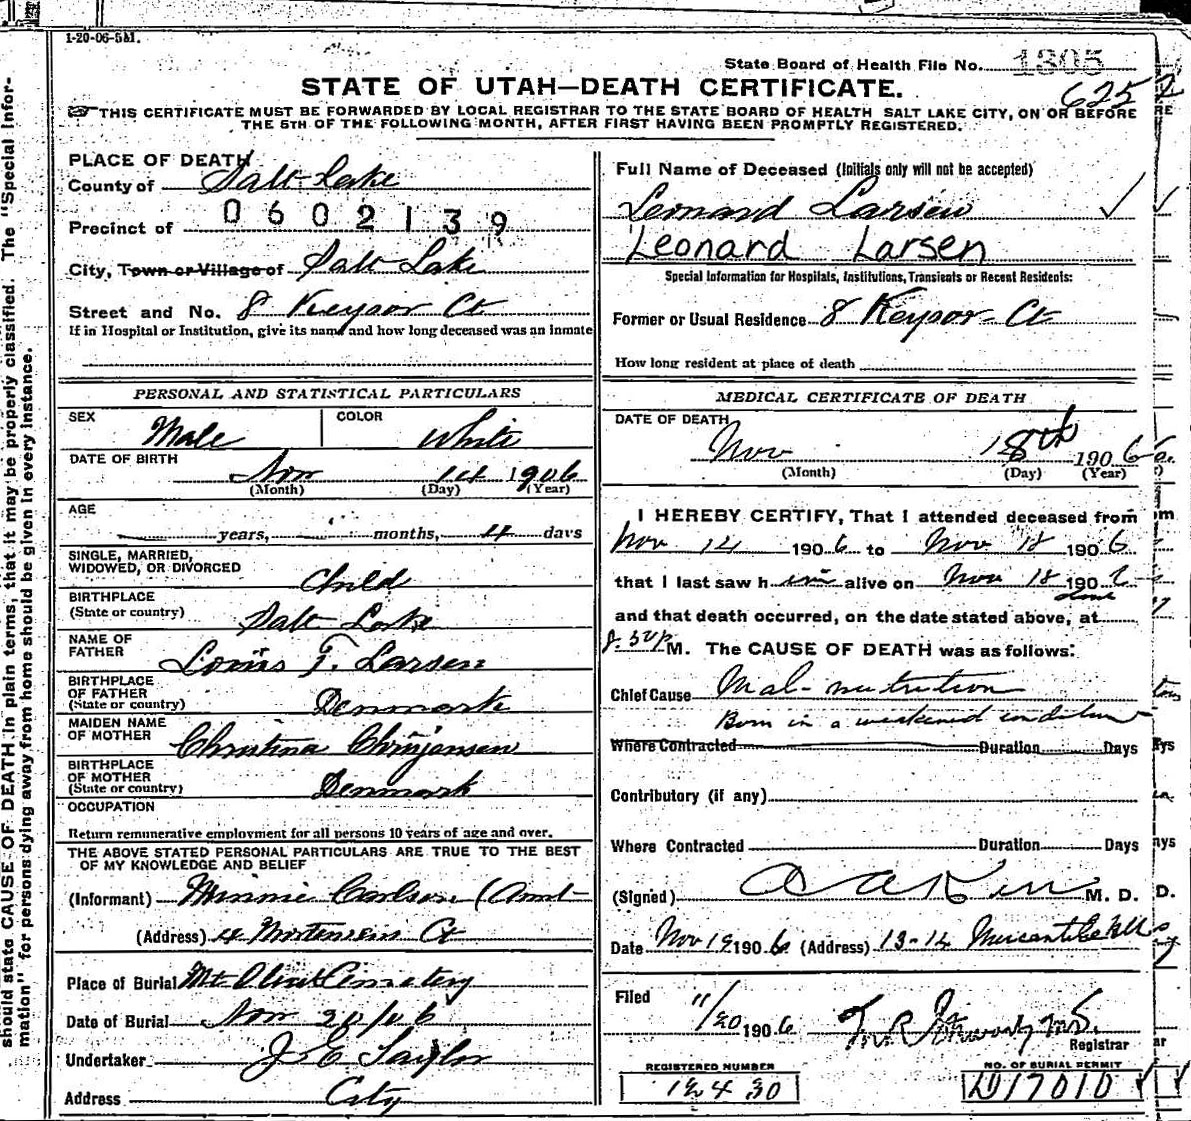 1-20-06-5M.
State Board of Health File No. 1305
STATE OF UTAH—DEATH CERTIFICATE.
625
THIS CERTIFICATE MUST BE FORWARDED BY LOCAL REGISTRAR TO THE STATE BOARD OF HEALTH SALT LAKE CITY, ON OR BEFORE
THE 5TH OF THE FOLLOWING MONTH, AFTER FIRST HAVING BEEN PROMPTLY REGISTERED.
should state CAUSE OF DEATH in plain terms, that it may be properly classified. The "Special Infor-
mation" for persons dying away from home should be given in every instance.
PLACE OF DEATH
County of Salt Lake
Precinct of 0602139
City, Town or Village of Salt Lake
Street and No. 8 Keysor Ct
If in Hospital or Institution, give its name and how long deceased was an inmate
Full Name of Deceased (Initials only will not be accepted)
Leonard Larsen
Leonard Larsen
Special Information for Hospitals, Institutions, Transients or Recent Residents:
Former or Usual Residence 8 Keysor Ct
How long resident at place of death
PERSONAL AND STATISTICAL PARTICULARS
SEX Male COLOR White
DATE OF BIRTH Nov 14 1906
(Month) (Day) (Year)
AGE
years, months, 4 days
SINGLE, MARRIED,
WIDOWED, OR DIVORCED Child
BIRTHPLACE
(State or country) Salt Lake
NAME OF
FATHER Louis F. Larsen
BIRTHPLACE
OF FATHER
(State or country) Denmark
MAIDEN NAME
OF MOTHER Christina Chrisjensen
BIRTHPLACE
OF MOTHER
(State or country) Denmark
OCCUPATION
Return remunerative employment for all persons 10 years of age and over.
THE ABOVE STATED PERSONAL PARTICULARS ARE TRUE TO THE BEST
OF MY KNOWLEDGE AND BELIEF
(Informant) Minnie Carlson (Aunt
(Address) 4 Mortensen Ct
Place of Burial Mt Olivet Cemetery
Date of Burial Nov 20/06
Undertaker J E Taylor
Address City
MEDICAL CERTIFICATE OF DEATH
DATE OF DEATH
Nov 18th 1906
(Month) (Day) (Year)
I HEREBY CERTIFY, That I attended deceased from
Nov 14 1906 to Nov 18 1906
that I last saw him alive on Nov 18 190
and that death occurred, on the date stated above, at
M. The CAUSE OF DEATH was as follows:
Chief Cause Mal-nutrition
Born in a weakened condition
Where Contracted Duration Days
Contributory (if any)
Where Contracted Duration Days
(Signed) M. D.
Date Nov 19 1906 (Address) 13-14 Mercantile
Filed 11/20 1906
Registrar
REGISTERED NUMBER
12430
NO. OF BURIAL PERMIT
D17010